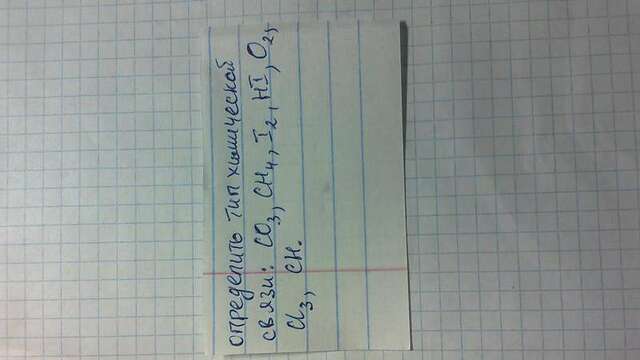 определить тип химической
связи: CO3, CH4, I2, HI, O2,
Cl3, CH.